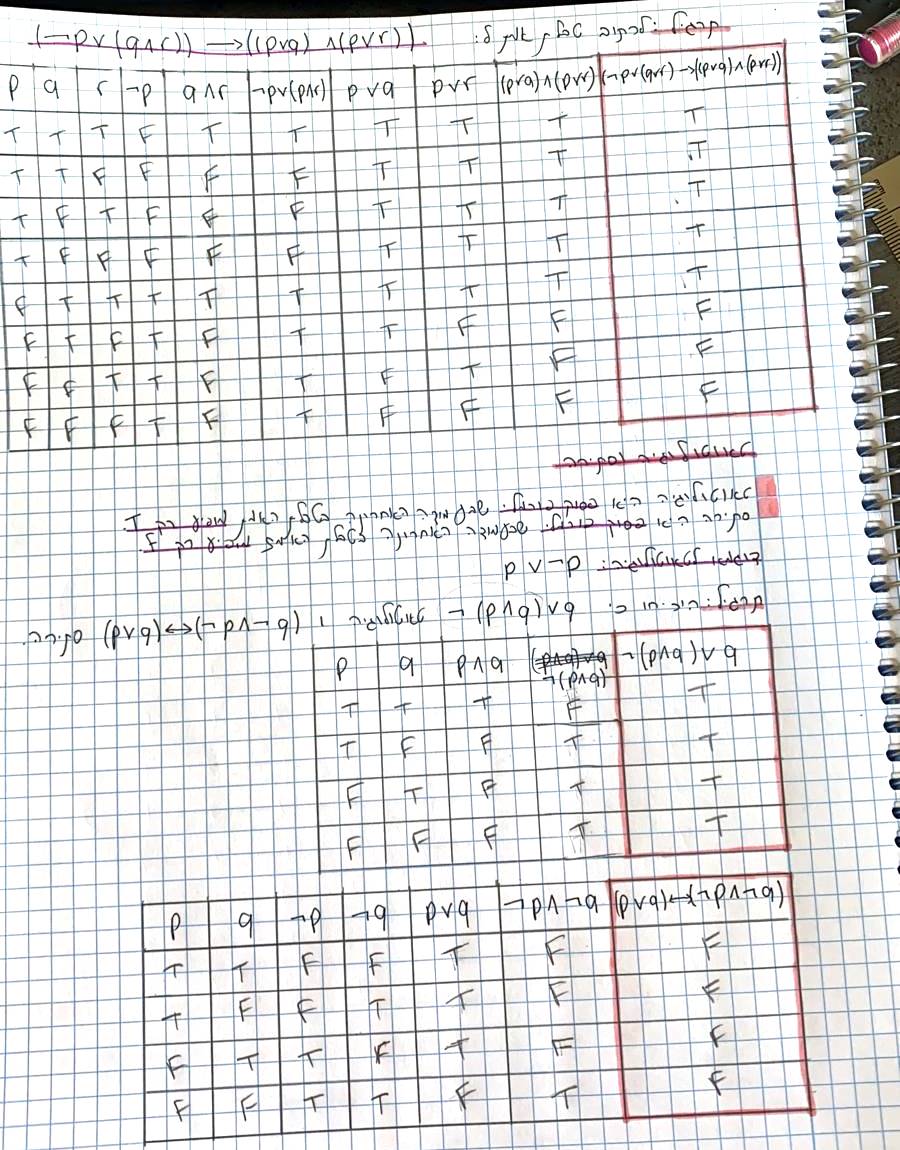 תרגיל: לכתוב טבלת אמת ל: (¬p∨(q∧r)) → ((p∨q) ∧(p∨r))
p q r ¬p q∧r ¬p∨(p∧r) p∨q p∨r (p∨q)∧(p∨r) (¬p∨(q∧r)→((p∨q)∧(p∨r))
T T T F T T T T T T
T T F F F F T T T T
T F T F F F T T T T
T F F F F F T T T T
F T T T T T T T T T
F T F T F T T F F F
F F T T F T F T F F
F F F T F T F F F F
טאוטולוגיה וסתירה
טאוטולוגיה היא פסוק שעמודה האחרונה בטבלת האמת מופיע רק T.
סתירה היא פסוק שעמודה האחרונה בטבלת האמת מופיע רק F.
דוגמא לטאוטולוגיה: p ∨ ¬p
תרגיל: הוכיחו כי ¬(p∧q)∨q טאוטולוגיה ו (p∨q)↔(¬p∧¬q) סתירה.
p q p∧q (p∧q)∨q ¬(p∧q) ¬(p∧q)∨q
T T T F T
T F F T T
F T F T T
F F F T T
p q ¬p ¬q p∨q ¬p∧¬q (p∨q)↔(¬p∧¬q)
T T F F T F F
T F F T T F F
F T T F T F F
F F T T F T F